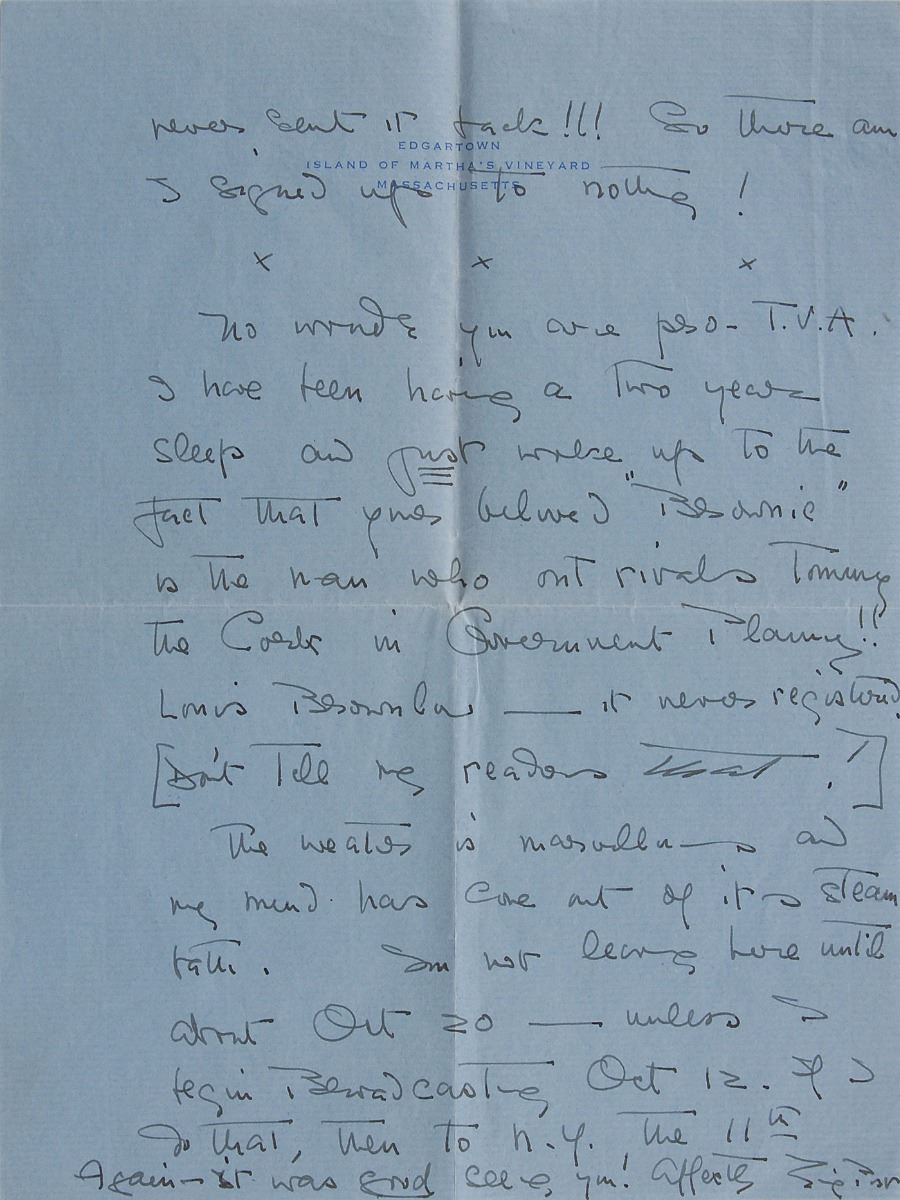 never sent it back!!! So there am
EDGARTOWN
ISLAND OF MARTHA'S VINEYARD
MASSACHUSETTS
I signed up to nothing!
x x x
No wonder you are pro-T.V.A.
I have been having a two years
sleep and just woke up to the
fact that your beloved "Brownie"
is the man who out rivals Tommy
the Cork in Government Planning!!
Louis Brownlow — it never registered.
[Don't tell my readers that!]
The weather is marvellous and
my mind has come out of its steam
bath. I'm not leaving here until
about Oct 20 — unless I
begin Broadcasting Oct 12. If I
do that, then to N.Y. the 11th
Again - it was good seeing you! Affectly